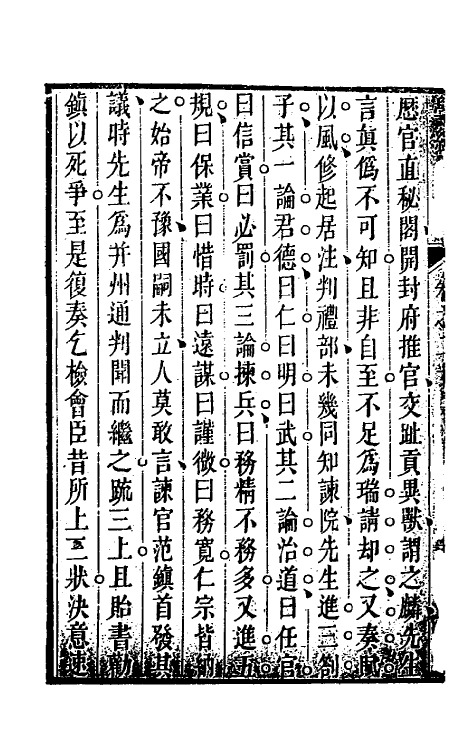 歷官直秘閣開封府推官交趾貢異獸謂之麟先生
言眞僞不可知且非自至不足爲瑞請却之又奏賦
以風修起居注判禮部未幾同知諫院先生進三劄
子其一論君德曰仁曰明曰武其二論治道曰任官
曰信賞曰必罰其三論揀兵曰務精不務多又進五
規曰保業曰惜時曰遠謀曰謹微曰務寬仁宗皆納
之始帝不豫國嗣未立人莫敢言諫官范鎮首發其
議時先生爲并州通判聞而繼之疏三上且貽書勸
鎮以死爭至是復奏乞檢會臣昔所上三狀決意速